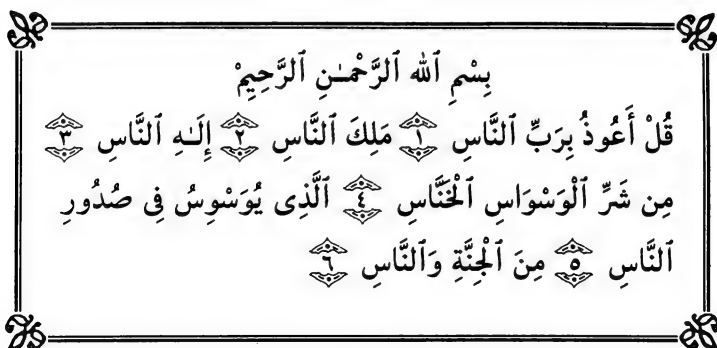 بِسْمِ ٱللّٰه ٱلرَّحْمَـٰنِ ٱلرَّحِيمْ
قُلْ أَعُوذُ بِرَبِّ ٱلنَّاسِ ١ مَلِكَ ٱلنَّاسِ ٢ إِلَـٰهِ ٱلنَّاسِ ٣
مِن شَرِّ ٱلْوَسْوَاسِ ٱلْخَنَّاسِ ٤ ٱلَّذِى يُوَسْوِسُ فِى صُدُورِ
ٱلنَّاسِ ٥ مِنَ ٱلْجِنَّةِ وَٱلنَّاسِ ٦